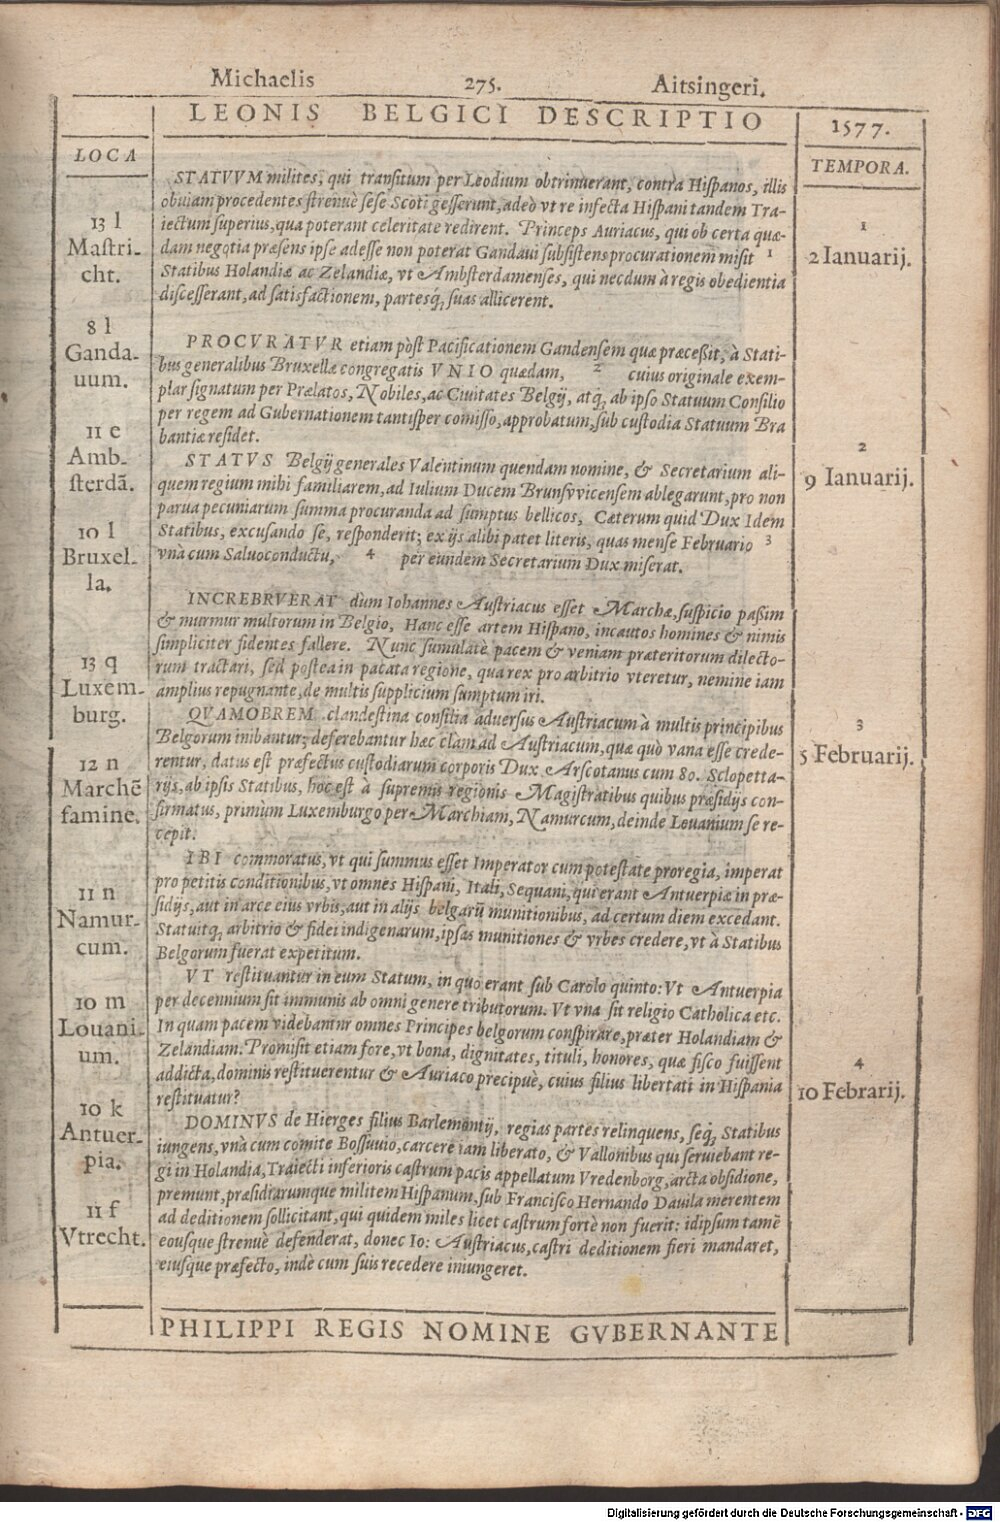 Michaelis 275. Aitsingeri.
LEONIS BELGICI DESCRIPTIO
1577.
LOCA
TEMPORA.
13 l
Mastri-
cht.
8 l
Ganda-
uum.
11 e
Amb-
sterdã.
10 l
Bruxel-
la.
13 q
Luxem-
burg.
12 n
Marchẽ
famine.
11 n
Namur-
cum.
10 m
Louani-
um.
10 k
Antuer-
pia.
11 f
Vtrecht.
STATVVM milites, qui transitum per Leodium obtrinuerant, contra Hispanos, illis
obuiam procedentes strenuè sese Scoti gesserunt, adeò vt re infecta Hispani tandem Tra-
iectum superius, qua poterant celeritate redirent. Princeps Auriacus, qui ob certa quæ-
dam negotia præsens ipse adesse non poterat Gandaui subsistens procurationem misit 1
Statibus Holandiæ ac Zelandiæ, vt Ambsterdamenses, qui necdum à regis obedientia
discesserant, ad satisfactionem, partesq́, suas allicerent.
PROCVRATVR etiam pòst Pacificationem Gandensem quæ præceßit, à Stati-
bus generalibus Bruxellæ congregatis VNIO quædam, 2 cuius originale exem-
plar signatum per Prælatos, Nobiles, ac Ciuitates Belgij, atq́, ab ipso Statuum Consilio
per regem ad Gubernationem tantisper comisso, approbatum, sub custodia Statuum Bra
bantiæ residet.
STATVS Belgij generales Valentinum quendam nomine, & Secretarium ali-
quem regium mihi familiarem, ad Iulium Ducem Brunsvvicensem ablegarunt, pro non
parua pecuniarum summa procuranda ad sumptus bellicos, Cæterum quid Dux Idem
Statibus, excusando se, responderit; ex ijs alibi patet literis, quas mense Februario 3
vnà cum Saluoconductu, 4 per eundem Secretarium Dux miserat.
INCREBRVERAT dum Iohannes Austriacus esset Marchæ, suspicio paßim
& murmur multorum in Belgio, Hanc esse artem Hispano, incautos homines & nimis
simpliciter fidentes fallere. Nunc sumulatè pacem & veniam præteritorum dilecto-
rum tractari, sed postea in pacata regione, qua rex pro arbitrio vteretur, nemine iam
amplius repugnante, de multis supplicium sumptum iri.
QVAMOBREM clandestina consilia aduersus Austriacum à multis principibus
Belgorum inibantur; deferebantur hæc clam ad Austriacum, quæ quò vana esse crede-
rentur, datus est præfectus custodiarum corporis Dux Arscotanus cum 80. Sclopetta-
rijs, ab ipsis Statibus, hoc est à supremis regionis Magistratibus quibus præsidijs con-
firmatus, primùm Luxemburgo per Marchiam, Namurcum, deinde Louanium se re-
cepit.
IBI commoratus, vt qui summus esset Imperator cum potestate proregia, imperat
pro petitis conditionibus, vt omnes Hispani, Itali, Sequani, qui erant Antuerpiæ in præ-
sidijs, aut in arce eius vrbis, aut in alijs belgarũ munitionibus, ad certum diem excedant.
Statuitq, arbitrio & fidei indigenarum, ipsas munitiones & vrbes credere, vt à Statibus
Belgorum fuerat expetitum.
VT restituantur in eum Statum, in quo erant sub Carolo quinto: Vt Antuerpia
per decennium sit immunis ab omni genere tributorum. Vt vna sit religio Catholica etc.
In quam pacem videbantur omnes Principes belgorum conspirare, præter Holandiam &
Zelandiam. Promisit etiam fore, vt bona, dignitates, tituli, honores, quæ fisco fuissent
addicta, dominis restituerentur & Auriaco precipuè, cuius filius libertati in Hispania
restituatur?
DOMINVS de Hierges filius Barlemontij, regias partes relinquens, seq́, Statibus
iungens, vnà cum comite Bossuuio, carcere iam liberato, & Vallonibus qui seruiebant re-
gi in Holandia, Traiecti inferioris castrum pacis appellatum Vredenborg, arcta obsidione,
premunt, præsidiarumque militem Hispanum, sub Francisco Hernando Dauila merentem
ad deditionem sollicitant, qui quidem miles licet castrum fortè non fuerit: idipsum tamẽ
eousque strenuè defenderat, donec Io: Austriacus, castri deditionem fieri mandaret,
eiusque præfecto, inde cum suis recedere iniungeret.
1
2 Ianuarij.
2
9 Ianuarij.
3
5 Februarij.
4
10 Febrarij.
PHILIPPI REGIS NOMINE GVBERNANTE
Digitalisierung gefördert durch die Deutsche Forschungsgemeinschaft - DFG